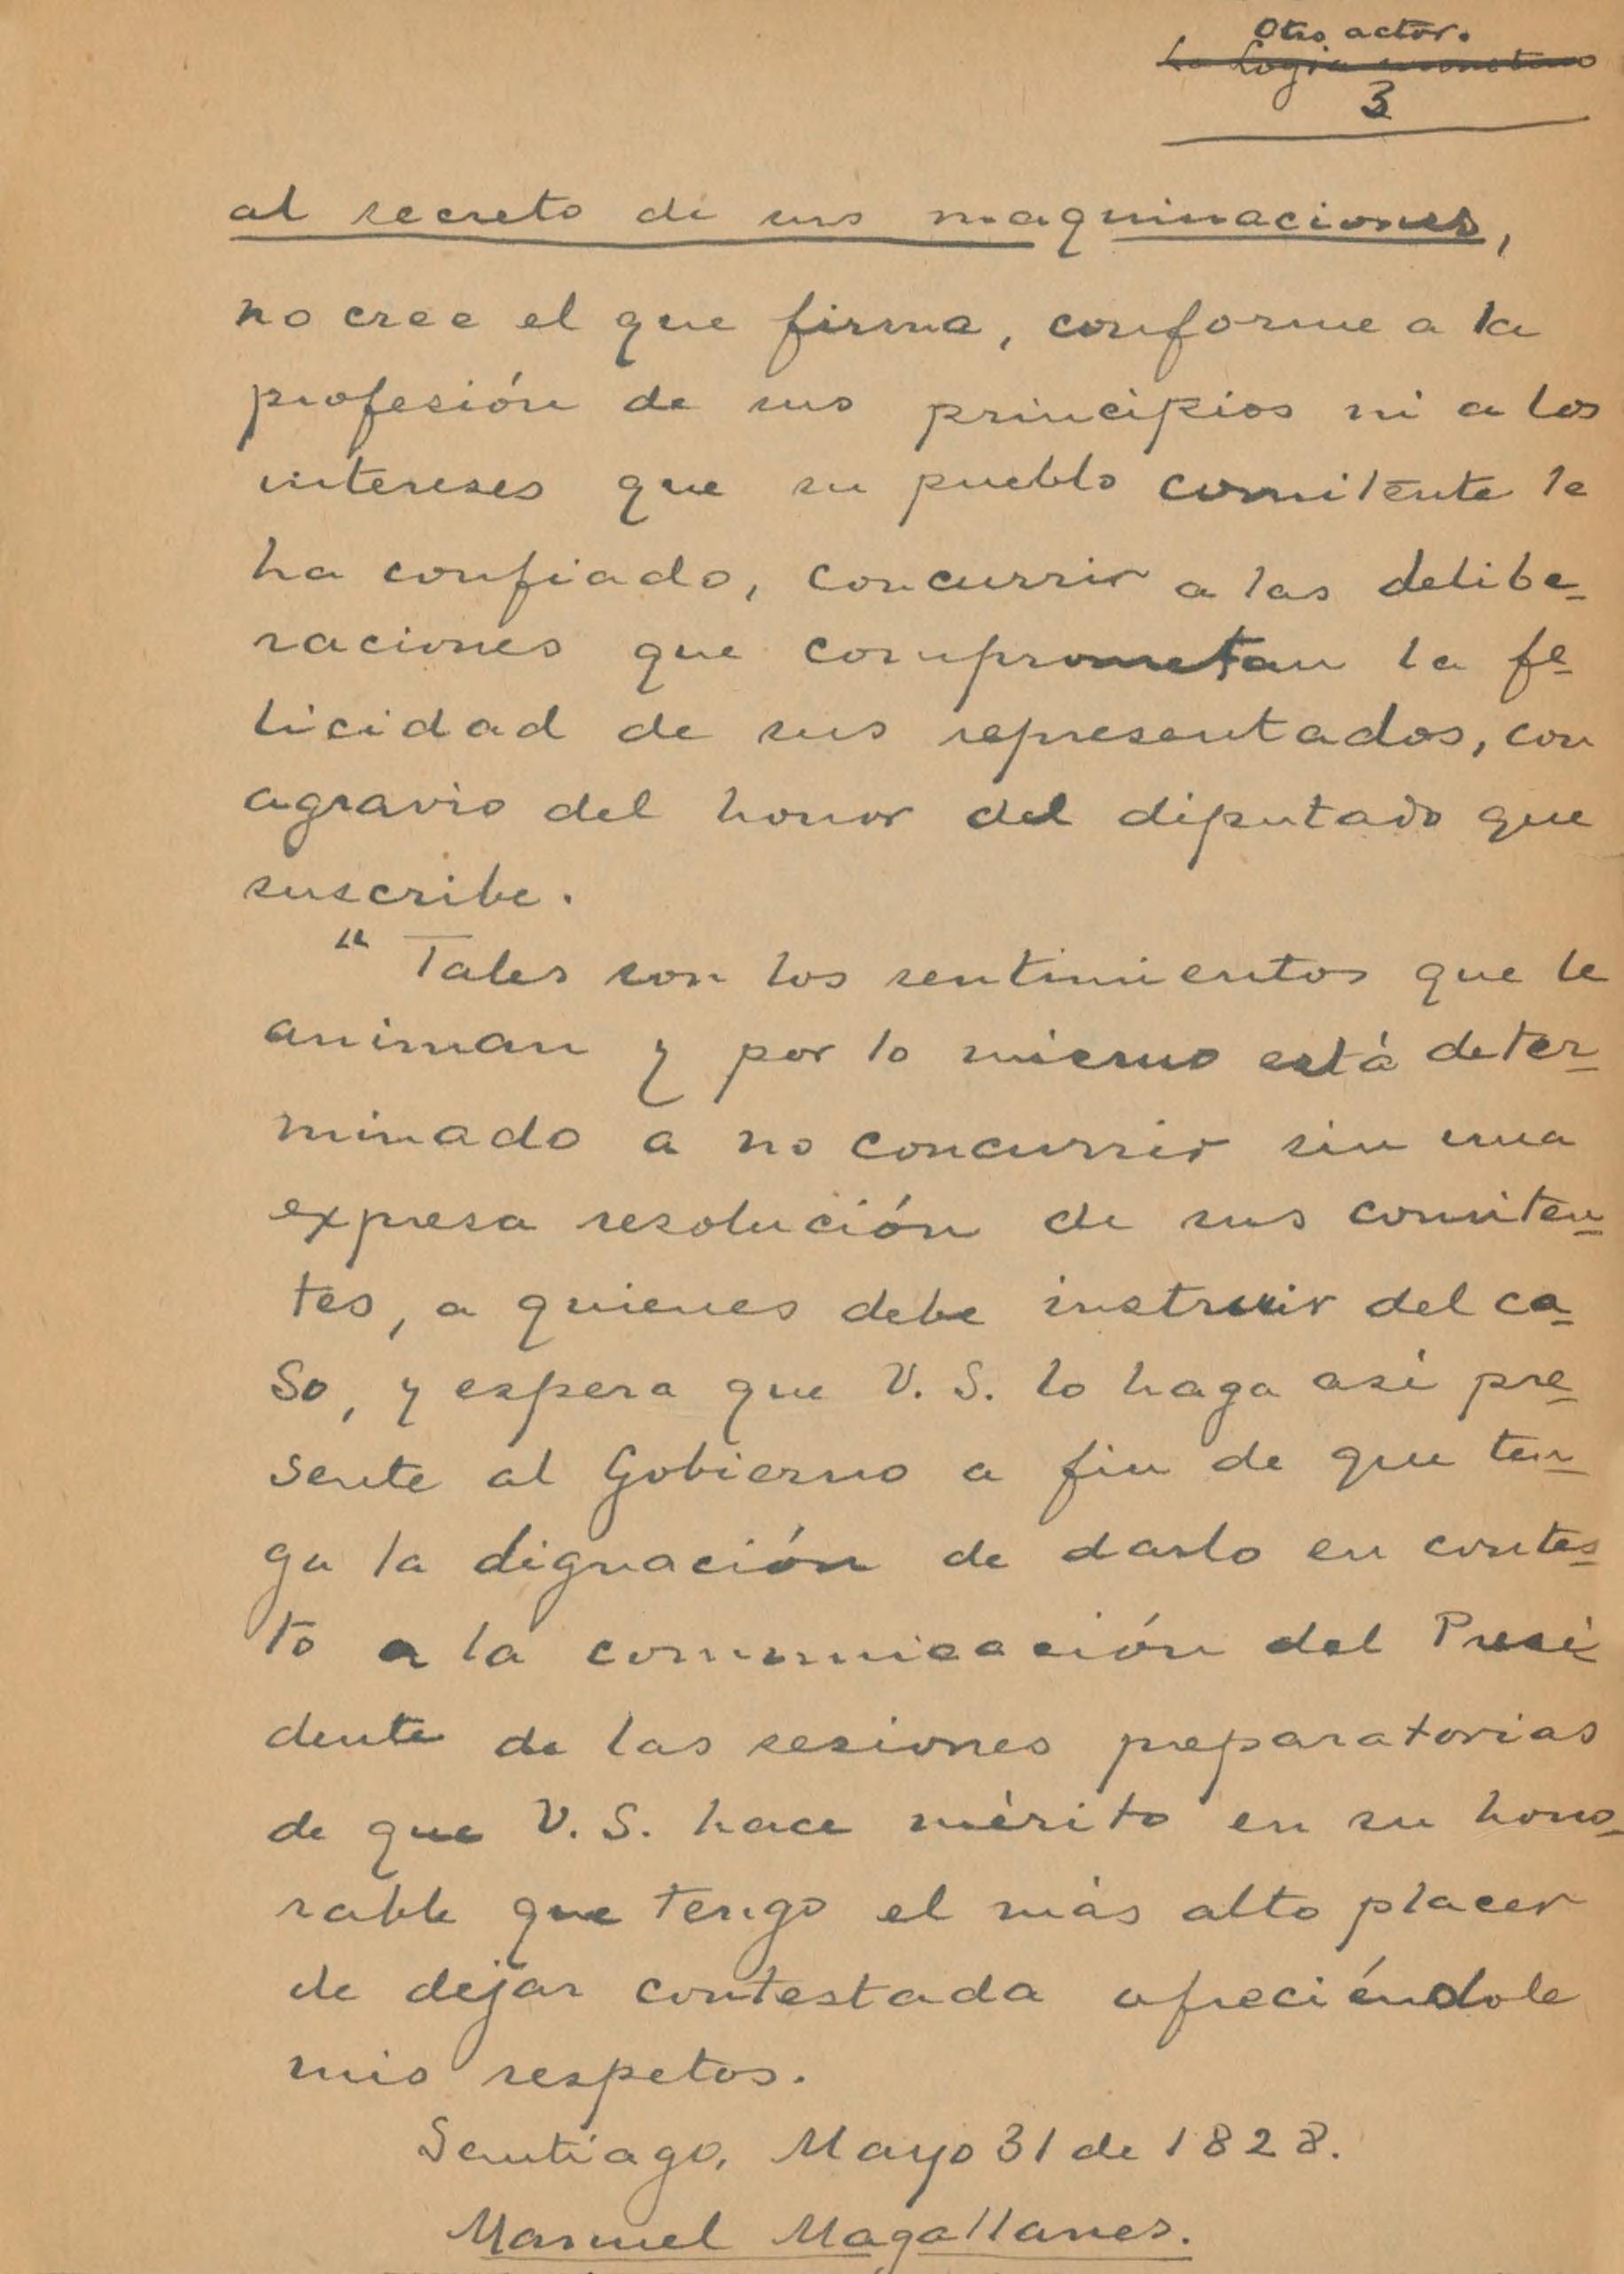 Otro actor.
La Logia
3
al secreto de sus maquinaciones,
no cree el que firma, conforme a la
profesión de sus principios ni a los
intereses que su pueblo comitente le
ha confiado, concurrir a las delibe-
raciones que comprometan la fe-
licidad de sus representados, con
agravio del honor del diputado que
suscribe.
" Tales son los sentimientos que le
animan y por lo mismo está deter-
minado a no concurrir sin una
expresa resolución de sus comiten-
tes, a quienes debe instruir del ca-
so, y espera que V. S. lo haga así pre-
sente al Gobierno a fin de que ten-
ga la dignación de darlo en contes-
to a la comunicación del Presi-
dente de las sesiones preparatorias
de que V. S. hace mérito en su hono-
rable que tengo el más alto placer
de dejar contestada ofreciéndole
mis respetos.
Santiago, Mayo 31 de 1828.
Manuel Magallanes.